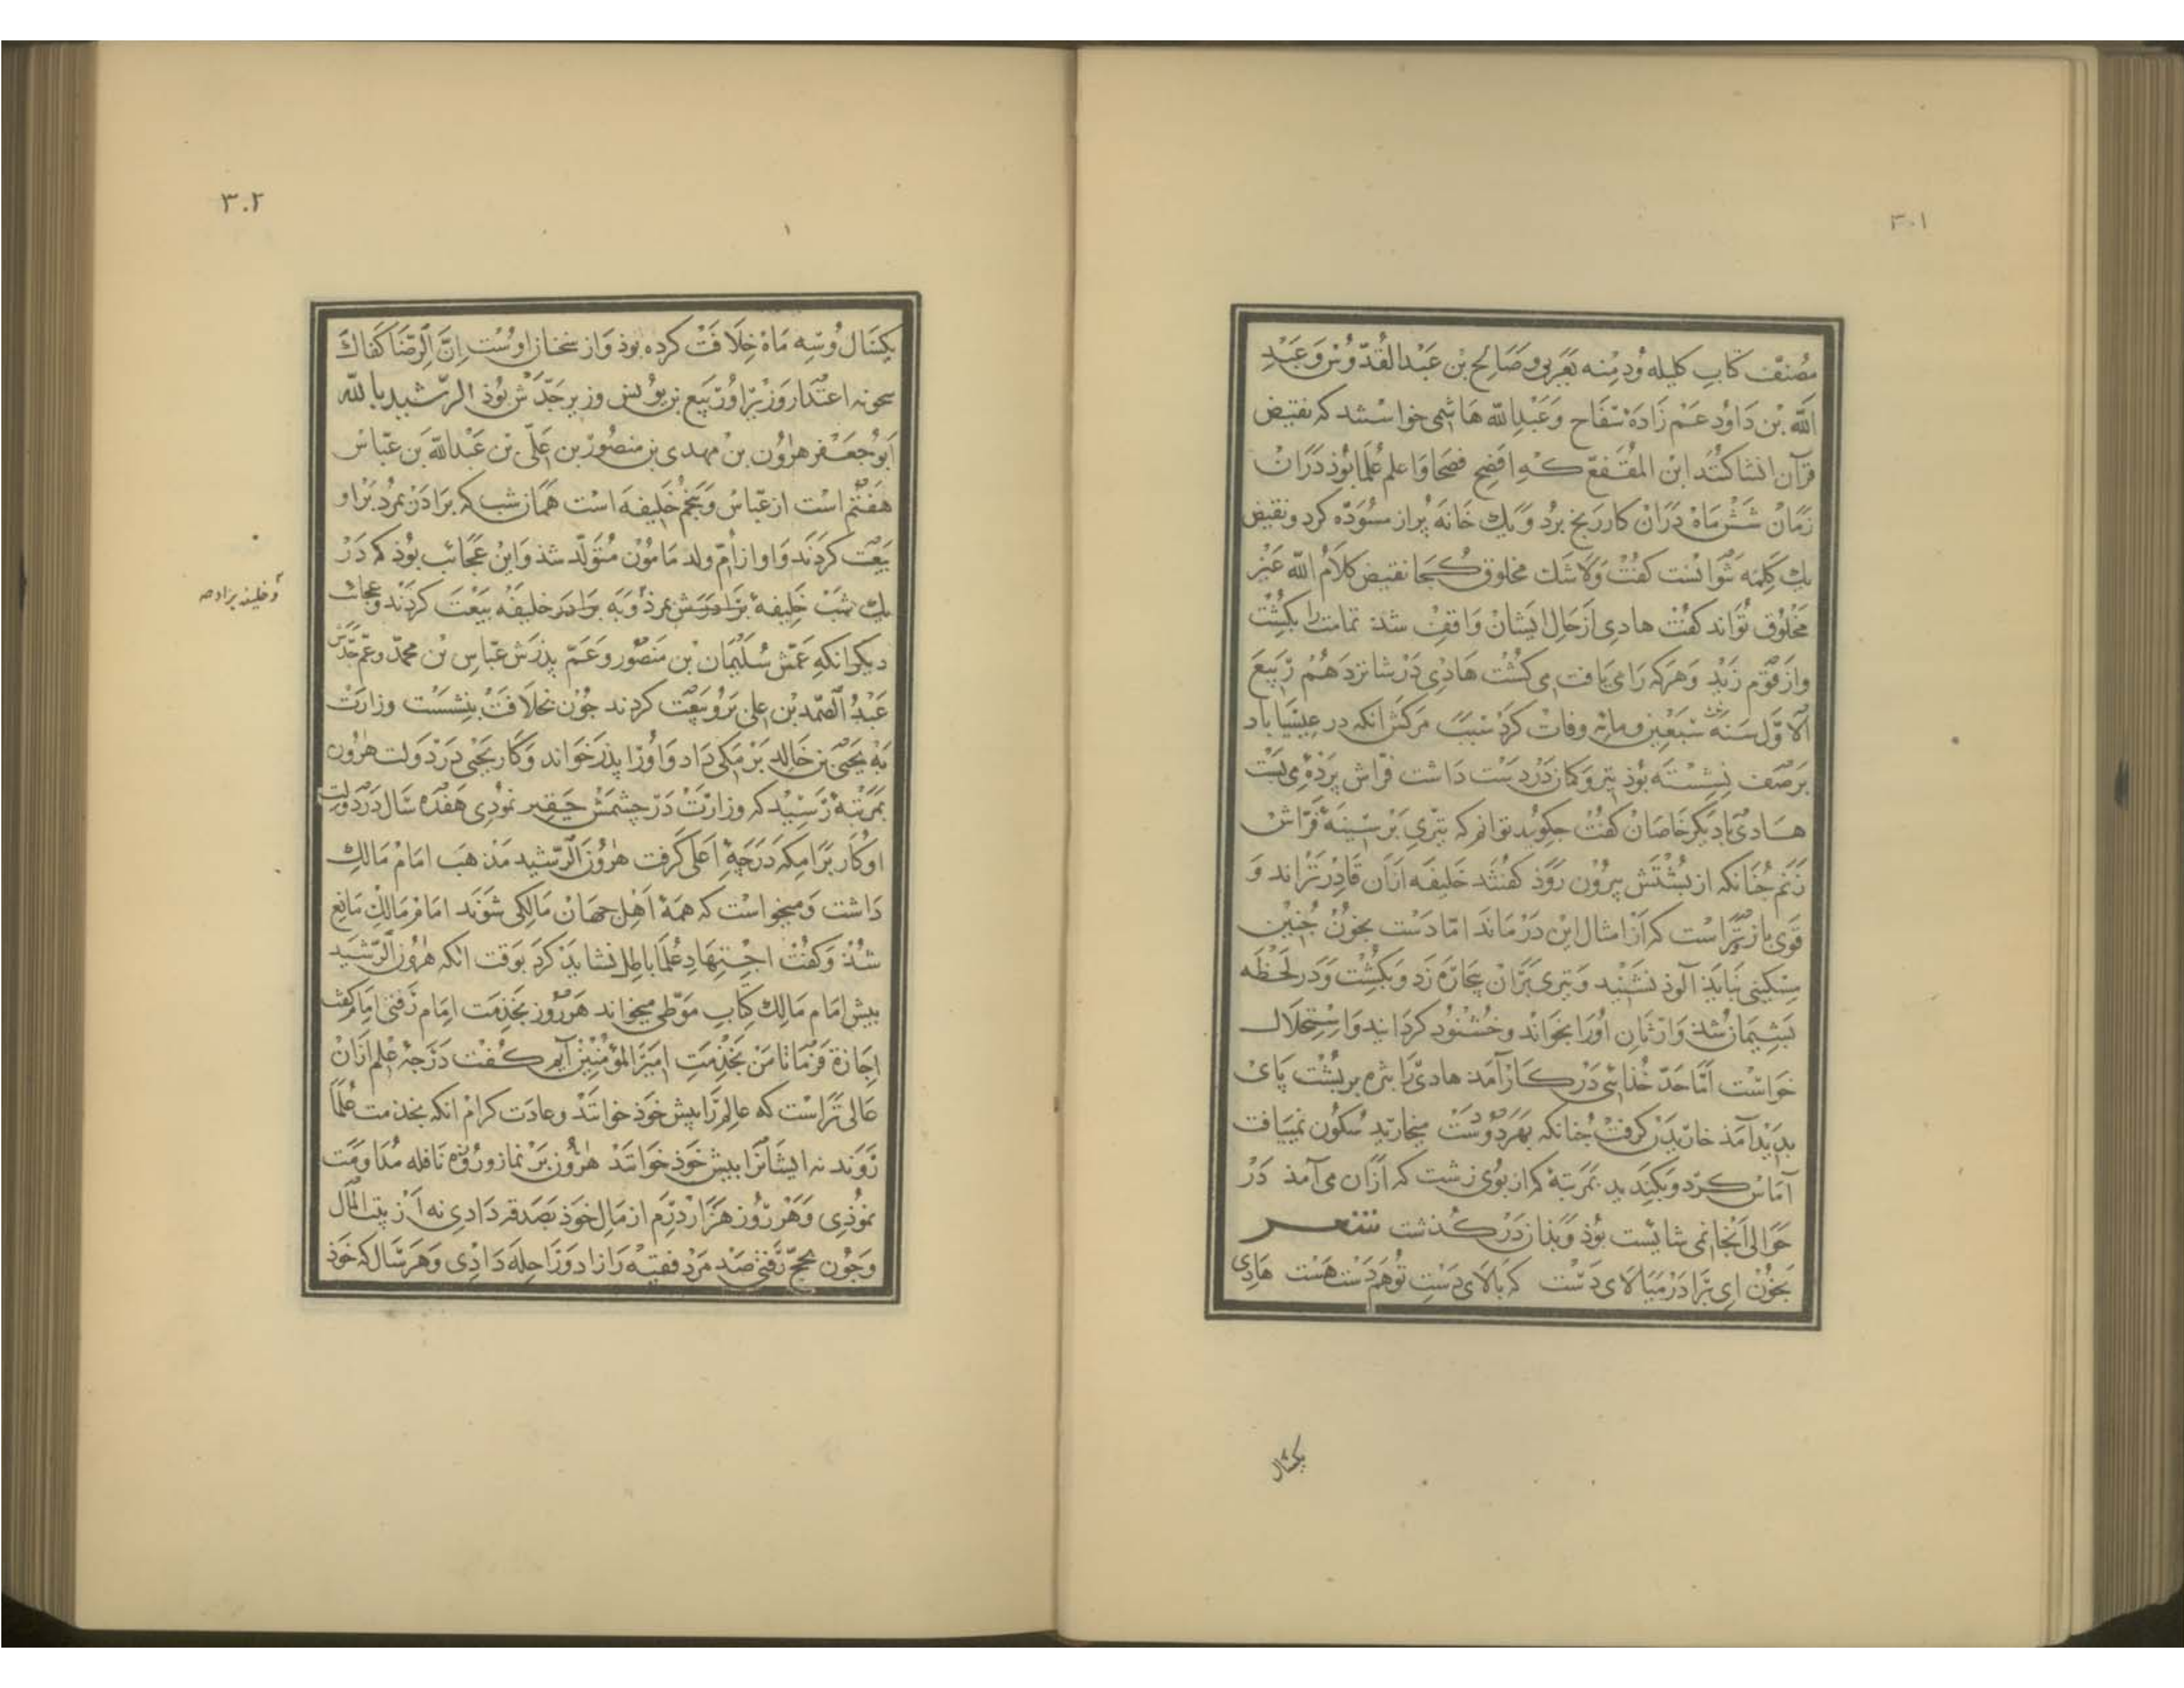 ۳۰۱
مصنّف کتاب کلیله ودمنه بعربی وصالح بن عبد القدّوس وعبد
الله بن داود عم زاده سفاح وعبد الله هاشمی خواستند که نقیض
قرآن انشا کنند ابن المقفع که افصح فصحا واعلم علما بوذ دران
زمان شش ماه دران کار رنج برد ویك خانه پر از مسوّده کرد ونقیض
یك کلمه نتوانست کفت ولا شك مخلوق کجا نقیض کلام الله غیر
مخلوق تواند کفت هادی از حال ایشان واقف شد تمامت را بکشت
واز قوم زید وهرکه را می یافت می کشت هادی در شانزدهم ربیع
الاول سنه سبعین ومایه وفات کرد سبب مرکش انکه در عیسیاباد
بر صف نشسته بوذ تیر وکمان در دست داشت فراش پرده می بست
هادی با دیکر خاصان کفت چکویید توانم که تیری بر سینۀ فراش
زنم چنانکه از پشتش بیرون روذ کفتند خلیفه ازان قادرتر اند و
قوی بازوتر است که از امثال این درماند اما دست بخون چنین
مسکینی نباید آلوذ نشنید وتیری بران بیچاره زد وبکشت ودر لحظه
پشیمان شد وارثان اورا بخواند وخشنود کردانید واستحلال
خواست امّا حدّ خذائی در کار آمد هادی را بثره بر پشت پای
بدید آمد خاریدن کرفت چنانکه بهر دو دست میخارید سکون نمییافت
آماس کرد وبکندید بمرتبۀ که از بوی زشت که ازان می آمذ در
حوالی آنجا نمی شایست بوذ وبذان در کذشت شعر
بخون ای برادر میالای دست که بالای دست تو هم دست هست هادی
یکسال
۳۰۲
یکسال وسه ماه خلافت کرده بوذ واز سخنان اوست انّ الرضا کفاك
اعتذار وزیر او ربیع بن یونس وزیر جدّش بوذ الرّشید بالله
ابو جعفر هرون بن مهدی بن منصور بن علّی بن عبدالله بن عباس
هفتم است از عباس وپنجم خلیفه است همان شب که برادن بمرد براو
بیعت کردند واو از ام ولد مامون متولّد شذ واین عجائب بوذ که در
یك شب خلیفۀ برادرش بمرذ وبه برادر خلیفه بیعت کردند وعجائب
وخلیفه بزاد صه
دیکر انکه عمّش سلیمان بن منصور وعم پذرش عباس بن محمد وعم جدّش
عبد الصّمد بن علی برو بیعت کردند چون بخلافت بنشست وزارت
به یحیی بن خالد برمکی داد واورا پذر خواند وکار یحیی در دولت هرون
بمرتبۀ رسید که وزارت در چشمش حقیر نمودی هفده سال در دولت
او کار برامکه درجۀ اعلی کرفت هرون الرّشید مذهب امام مالك
داشت ومیخواست که همۀ اهل جهان مالکی شوند امام مالك مانع
شذ وکفت اجتهاد علما باطل نشاید کرد بوقت انکه هرون الرّشید
پیش امام مالك کتاب موطّی میخواند هر روز بخذمت امام رفتی امام کفت
اجازة فرما تا من بخذمت امیر المؤمنین آیم کفت درجۀ علم ازان
عالی تر است که عالم را پیش خوذ خوانند وعادت کرام انکه بخذمت علما
روند نه ایشانرا پیش خوذ خوانند هرون بر نماز وروزه نافله مداومت
نموذی وهر روز هزار درم از مال خوذ بصدقه دادی نه از بیت المال
وچون بحج رفتی صد مرد فقیه را زاد وراحله دادی وهر سال که خوذ